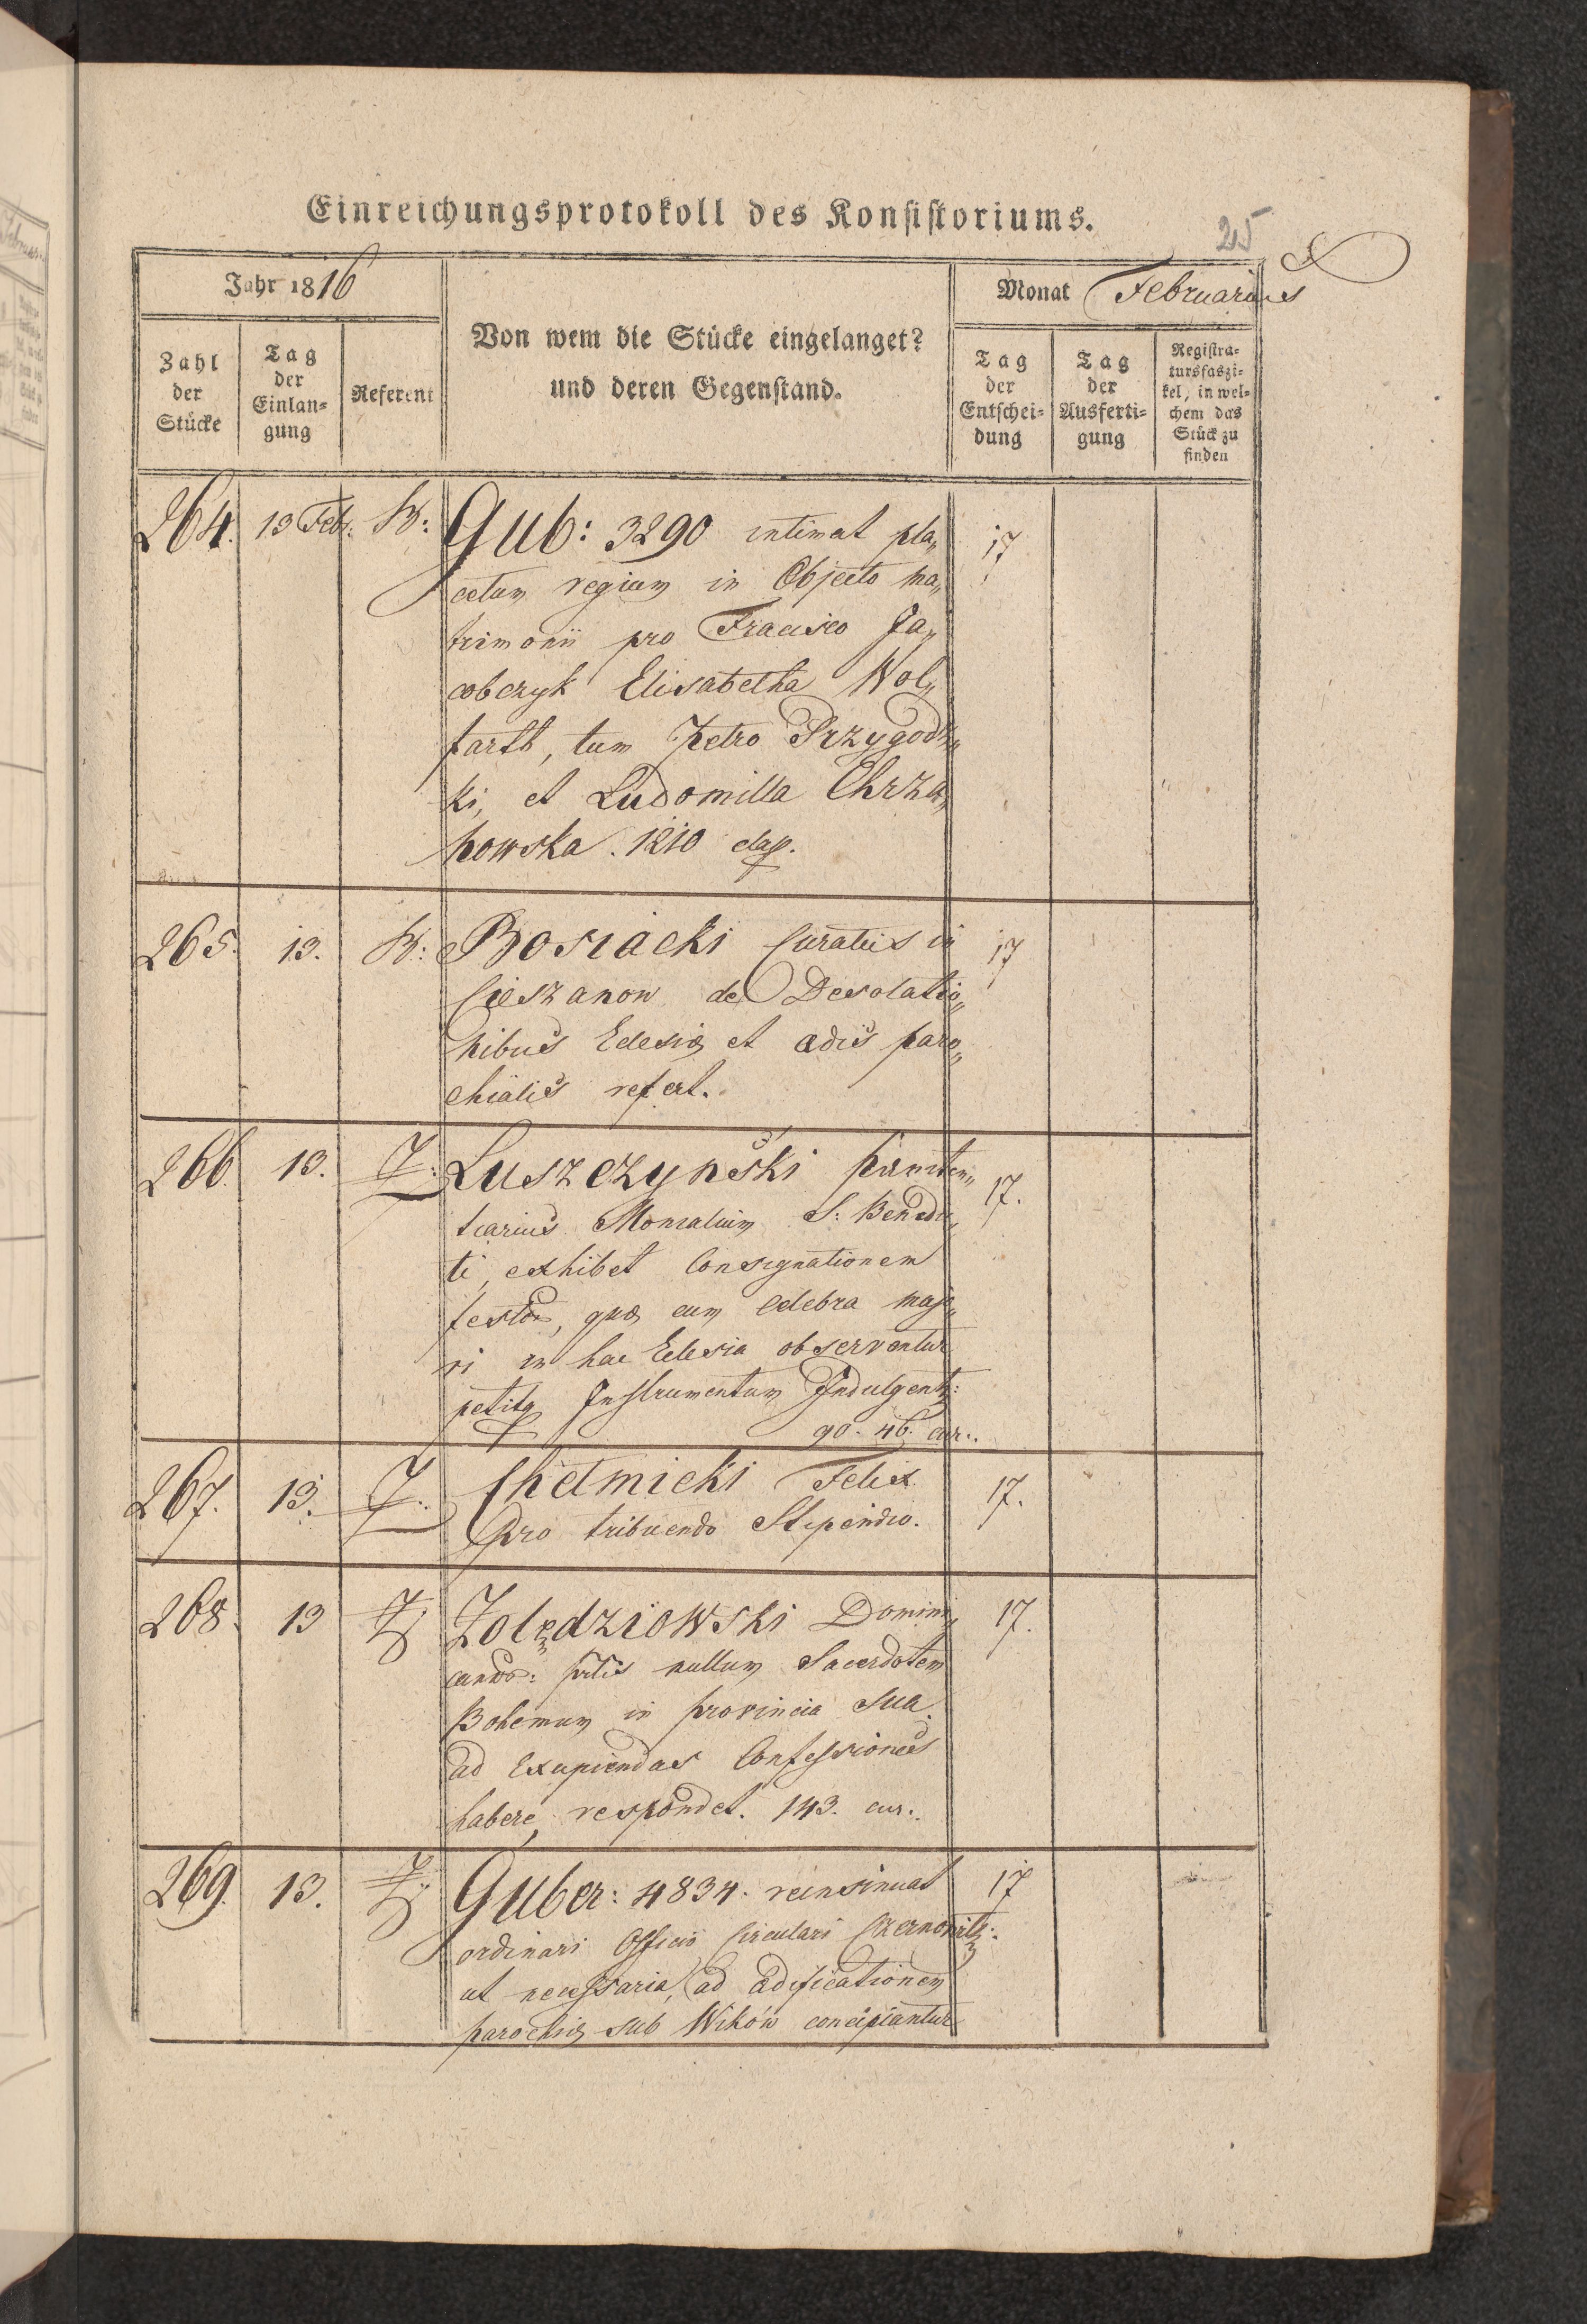 Einreichungsprotokoll des Konsistoriums.
25
Jahr 1816
Monat Februarius
Zahl der Stücke
Tag der Einlan=gung
Referent
Von wem die Stücke eingelanget?
und deren Gegenstand.
Tag der Entschei=dung
Tag der Ausferti=gung
Registra=tursfaszi=kel, in wel=chem das Stück zu finden
264. 13 Febr. Gub: 3290 intimat pla„ 17
cetum regium in Objecto ma„
trimonii pro Fracisco Ja„
cobczyk Elisabetha Wol„
farth, tum Petro Przygodz„
ki, et Ludomilla Chrza„
nowska. 1210
265. 13. Bosiacki Curatus in 17
Cieszanow de Desolatio„
nibus Eclesiæ et ædis paro„
chialis refert.
266. 13. Luszczynski pæniten„ 17.
tiarius Monialium S: Benedic„
ti, exhibet Consignationem
festor, quæ cum celebra majo„
ri in hac Eclesia observantur
petitq Instrumentum Indulgent:
90. 46. cur.
267. 13. Chełmicki Felix 17.
pro tribuendo Stipendio.
268. 13 Zolędziowski Domini„ 17.
canor: nullum Sacerdotem
Bohemum in provincia sua
ad Excipiendas Confessiones
habere, respondet. 143. cur.
269. 13. Guber: 4834. reinsinuat 17
ordinari Officio Circulari Czernovitz:
ut necessaria, ad ædificationem
parochiæ sub Wików concipiantur